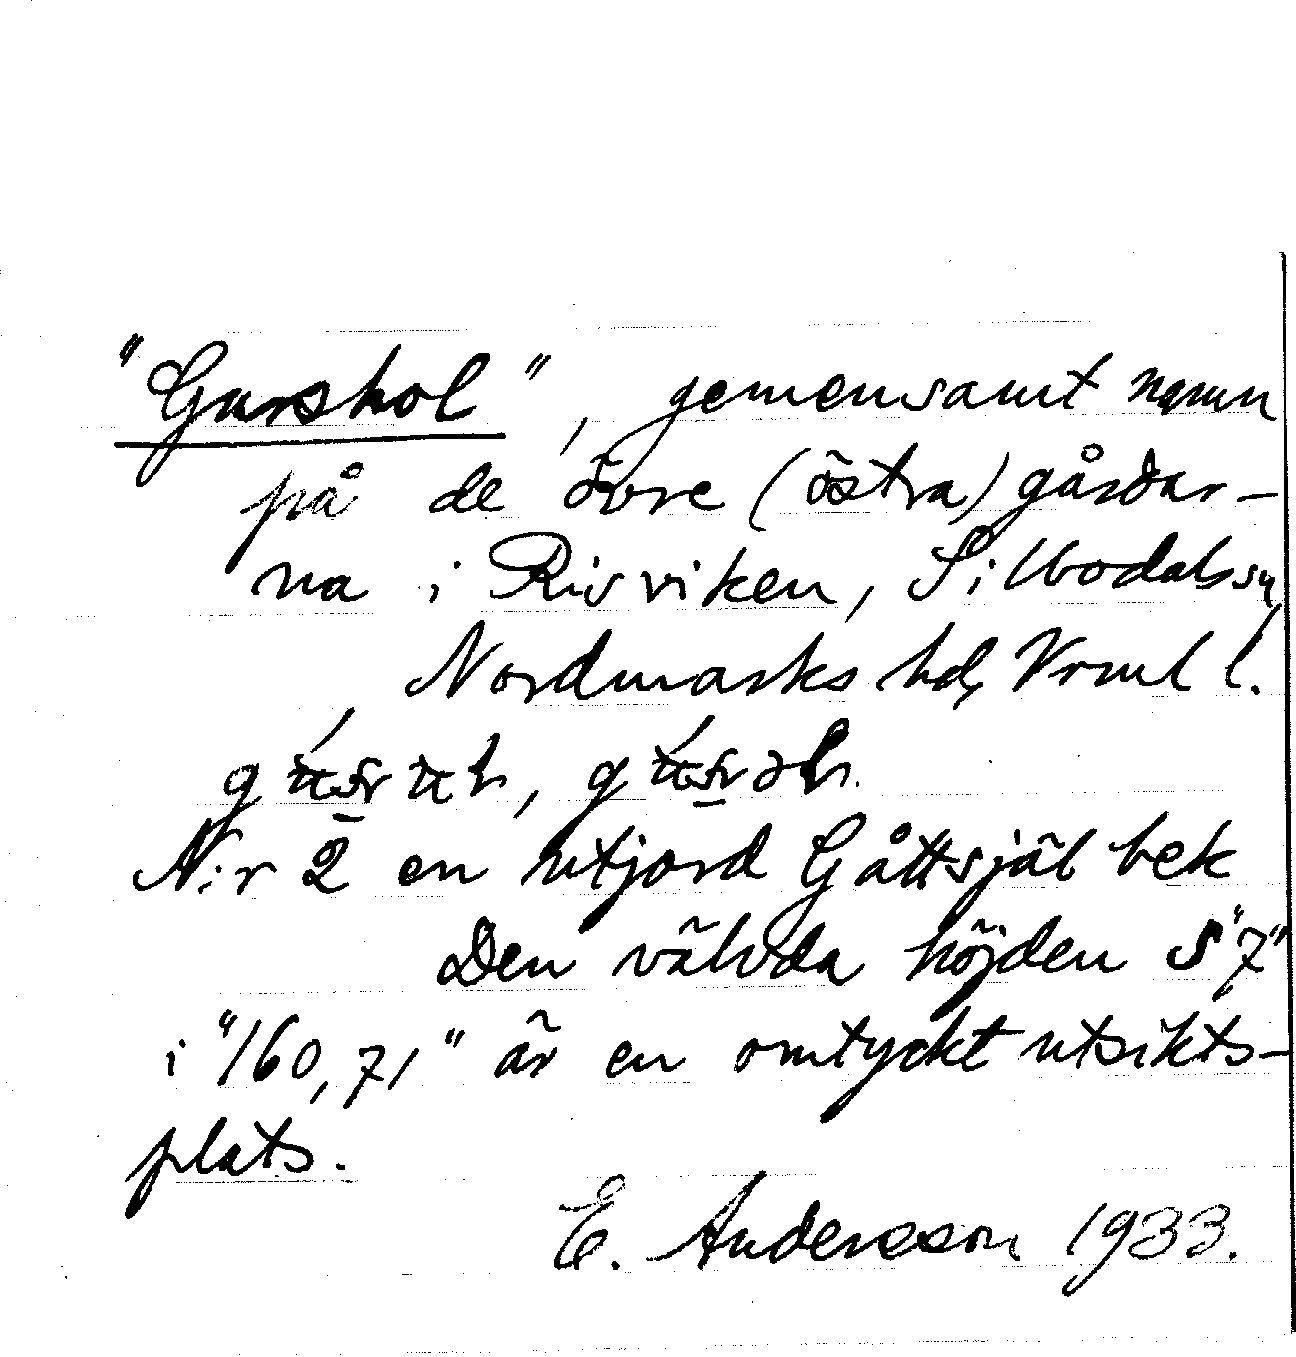 "Garshol", gemensamt namn
på de övre (östra) gårdar-
na i Risviken, Silbodals sn
Nordmarks hd, Vrml l.
N:r 2 en utjord Gåttsjäl bek
Den välvda höjden S "7"
i "160,71" är en omtyckt utsikts-
plats.
E. Andersson 1933.